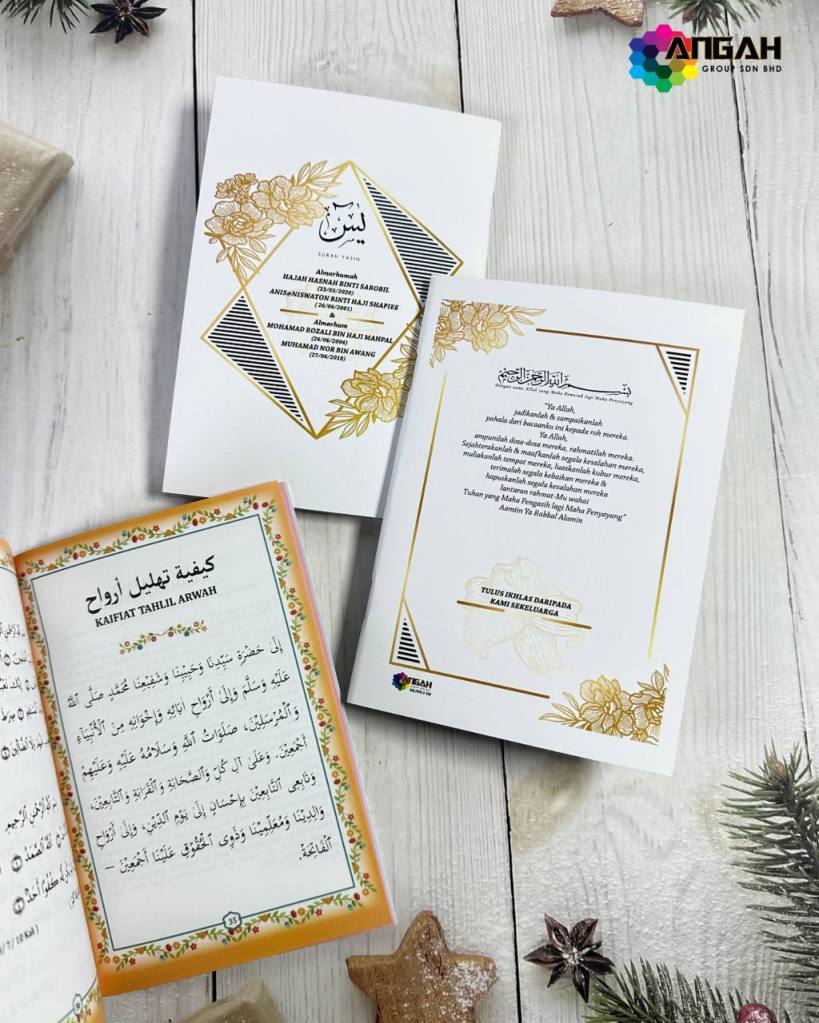 ANGAH
GROUP SDN BHD
يس
SURAH YASIN
Almarhumah
HAJAH HASNAH BINTI SAROBIL
(23/03/2020)
ANIS@NISWATON BINTI HAJI SHAPIEE
(26/06/2001)
&
Almarhum
MOHAMAD ROZALI BIN HAJI MAHPAL
(26/06/2004)
MUHAMAD NOR BIN AWANG
(27/06/2018)
بسم الله الرحمن الرحيم
Dengan nama Allah yang Maha Pemurah lagi Maha Penyayang
"Ya Allah,
jadikanlah & sampaikanlah
pahala dari bacaanku ini kepada roh mereka.
Ya Allah,
ampunilah dosa-dosa mereka, rahmatilah mereka.
Sejahterakanlah & maafkanlah segala kesalahan mereka,
muliakanlah tempat mereka, luaskanlah kubur mereka,
terimalah segala kebaikan mereka &
hapuskanlah segala kesalahan mereka
lantaran rahmat-Mu wahai
Tuhan yang Maha Pengasih lagi Maha Penyayang"
Aamiin Ya Rabbal Alamin
TULUS IKHLAS DARIPADA
KAMI SEKELUARGA
ANGAH
كيفية تهليل أرواح
KAIFIAT TAHLIL ARWAH
إِلَى حَضْرَةِ سَيِّدِنَا وَحَبِيْبِنَا وَشَفِيْعِنَا مُحَمَّدٍ صَلَّى اللهُ
عَلَيْهِ وَسَلَّمَ وَإِلَى أَرْوَاحِ ابَائِهِ وَإِخْوَانِهِ مِنَ الْأَنْبِيَاءِ
وَالْمُرْسَلِيْنَ، صَلَوَاتُ اللهِ وَسَلَامُهُ عَلَيْهِ وَعَلَيْهِمْ
أَجْمَعِيْنَ. وَعَلَى آلِ كُلٍّ وَالصَّحَابَةِ وَالْقَرَابَةِ وَالتَّابِعِيْنَ،
وَتَابِعِى التَّابِعِيْنَ بِإِحْسَانٍ إِلَى يَوْمِ الدِّيْنِ، وَإِلَى أَرْوَاحِ
وَالِدِيْنَا وَمُعَلِّمِيْنَا وَذَوِى الْحُقُوْقِ عَلَيْنَا أَجْمَعِيْنَ –
الْفَاتِحَةُ.
35
الرَّحْمٰنِ الرَّحِيْمِ
اللهُ الصَّمَدُ
كُفُوًا أَحَدٌ
/ 7 / 10 Kali )